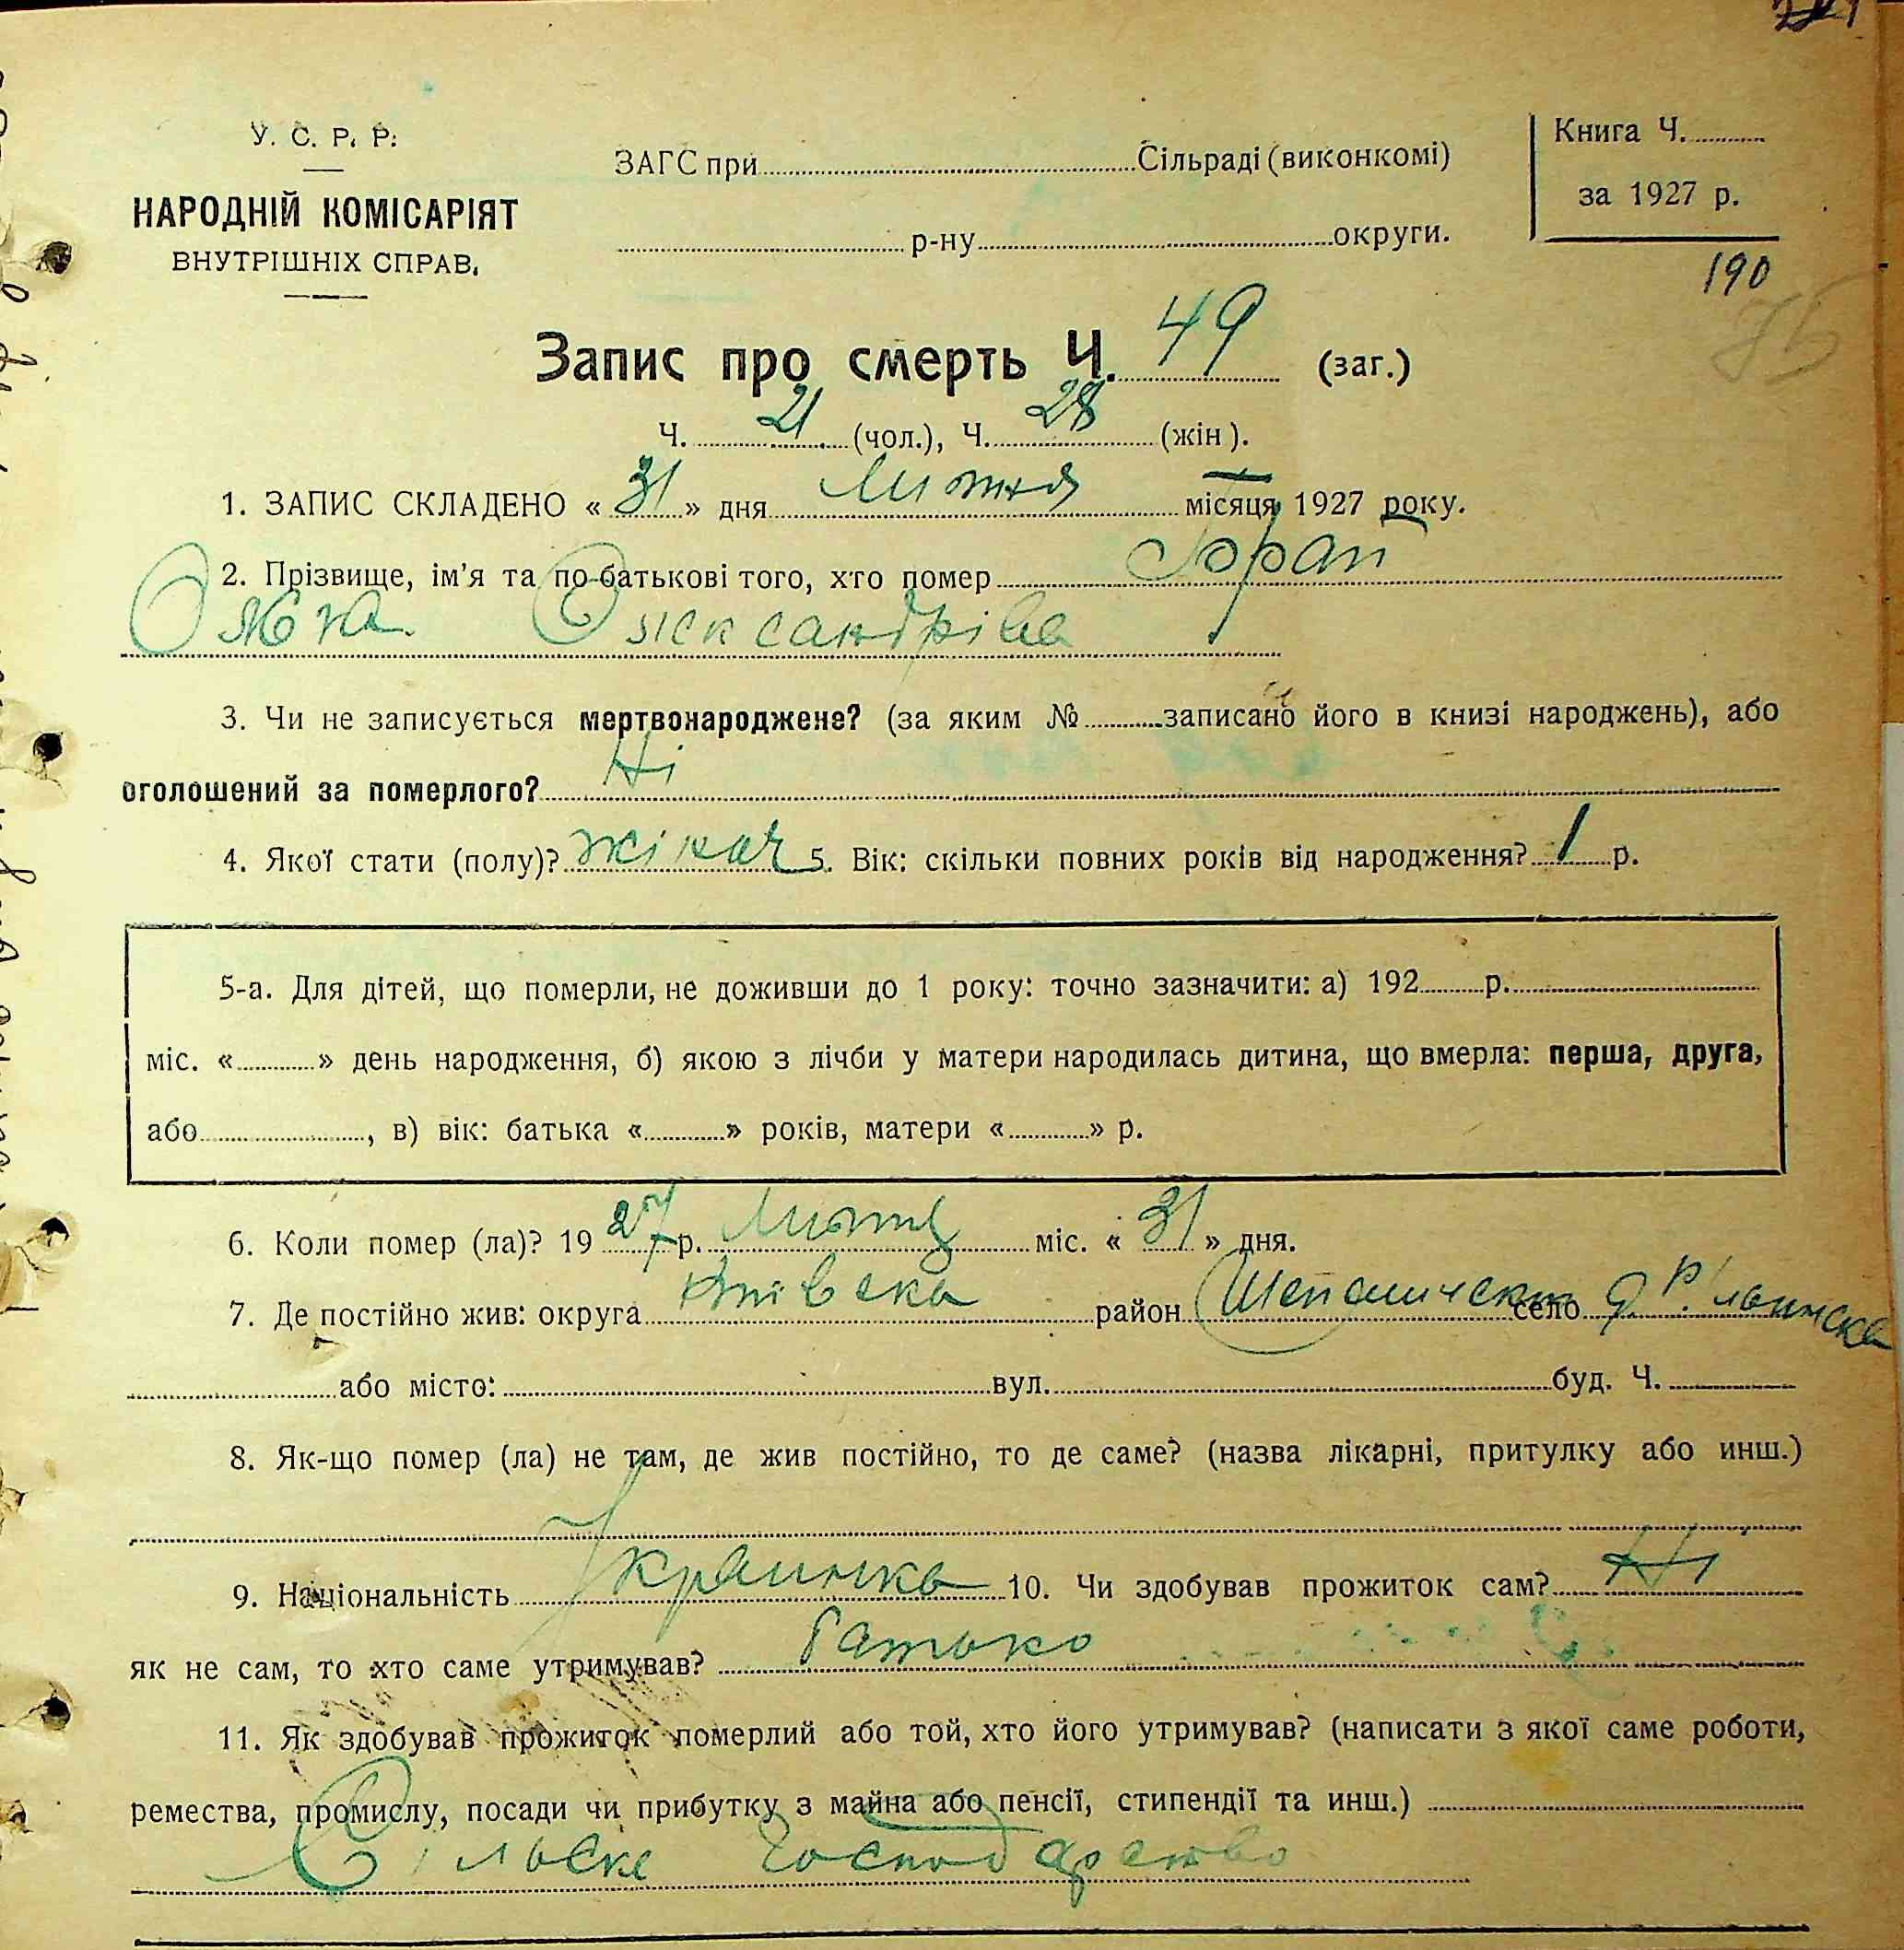 У. С. Р. Р.
НАРОДНІЙ КОМІСАРІЯТ
ВНУТРІШНІХ СПРАВ.
ЗАГС при Сільраді (виконкомі)
р-ну округи.
Книга Ч.
за 1927 р.
190
Запис про смерть Ч. 49 (заг.)
Ч. 21 (чол.), Ч. 28 (жін).
1. ЗАПИС СКЛАДЕНО « 31 » дня Липня місяця 1927 року.
2. Прізвище, ім'я та по-батькові того, хто помер
Олександрівна
3. Чи не записується мертвонароджене? (за яким № записано його в книзі народжень), або
оголошений за померлого? Ні
4. Якої стати (полу)? жіноч 5. Вік: скільки повних років від народження? 1 р.
5-а. Для дітей, що померли, не доживши до 1 року: точно зазначити: а) 192 р.
міс. « » день народження, б) якою з лічби у матери народилась дитина, що вмерла: перша, друга,
або , в) вік: батька « » років, матери « » р.
6. Коли помер (ла)? 19 27 р. Липня міс. « 31 » дня.
7. Де постійно жив: округа район село
або місто: вул. буд. Ч.
8. Як-що помер (ла) не там, де жив постійно, то де саме? (назва лікарні, притулку або инш.)
9. Національність Украинка 10. Чи здобував прожиток сам? Ні
як не сам, то хто саме утримував? батько
11. Як здобував прожиток померлий або той, хто його утримував? (написати з якої саме роботи,
ремества, промислу, посади чи прибутку з майна або пенсії, стипендії та инш.)
Сільське господарство